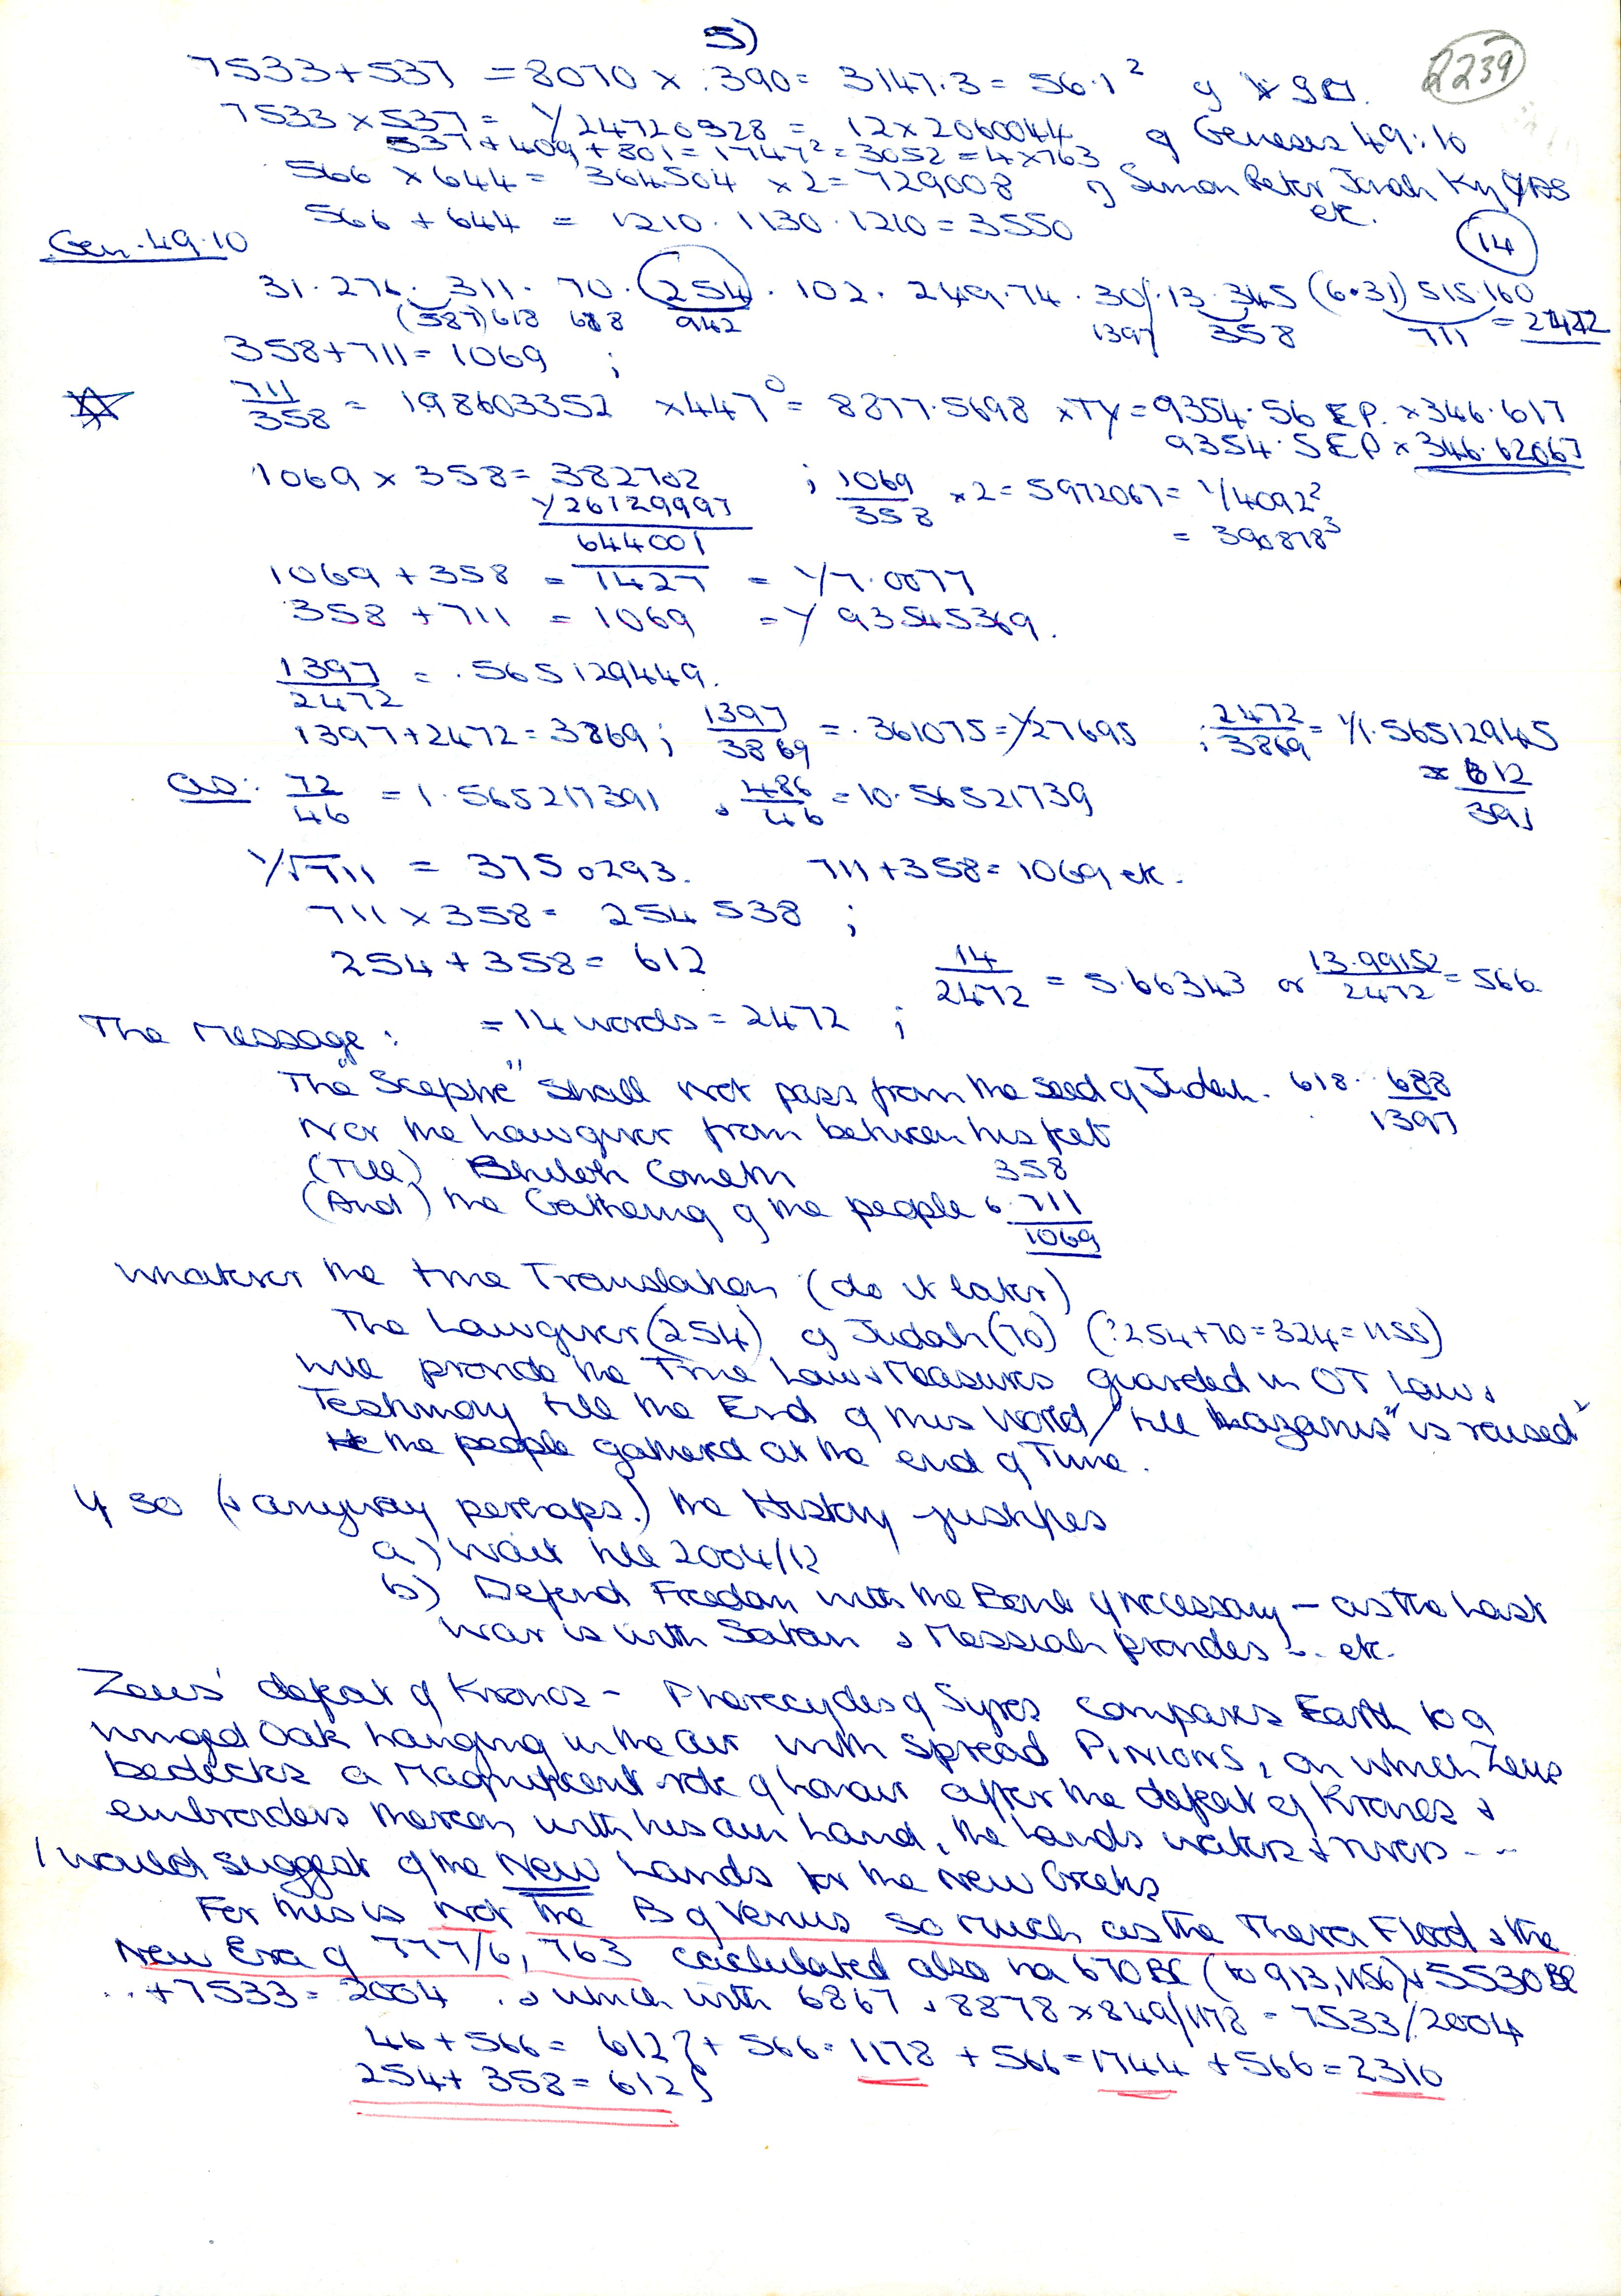 5)
2239
7533 + 537 = 8070 × .390 = 3147.3 = 56.1²
7533 × 537 = 1/24720328 = 12 × 2060044 of Genesis 49:10
537 + 409 + 801 = 1747² = 3052 = 4×763
566 × 644 = 364504 × 2 = 729008 Simon Peter Jonah
etc.
566 + 644 = 1210 . 1130 . 1210 = 3550
14
Gen. 49.10
31 . 276 . 311 . 70 . 254 . 102 . 249 . 74 . 30 . 13 . 345 (6.31) 515 . 160
(587) 618 688 942 1397 358 711 = 2472
358 + 711 = 1069 ;
711/358 = 198603352 × 447⁰ = 8877.5698 × TY = 9354.56 EP. × 346.617
9354.5 EP × 346.62067
1069 × 358 = 382702 ; 1069/358 × 2 = 5972067 = 1/4092²
1/26129997 = 390878³
644001
1069 + 358 = 1427 = 1/7.0077
358 + 711 = 1069 = 1/93545369.
1397/2472 = .565129449.
1397 + 2472 = 3869 ; 1397/3869 = .361075 = 1/27695 ; 2472/3869 = 1/1.56512945
× 612
391
as: 72/46 = 1.565217391 , 486/46 = 10.56521739
1/√711 = 3750293. 711 + 358 = 1069 etc.
711 × 358 = 254538 ;
254 + 358 = 612 14/2472 = 5.66343 or 13.99152/2472 = 566.
The Message : = 14 words = 2472 ;
The "Sceptre" shall not pass from the seed of Judah. 618 . 688
Nor the Lawgiver from between his feet 1397
(Till) Shiloh Cometh 358
(And) the Gathering of the people 6. 711
1069
Whatever the true Translation (do it later)
The Lawgiver (254) of Judah (70) (?254+70=324=1155)
will provide the True Law & Measures guarded in OT Law &
Testimony till the End of this World / till is raised
the people gathered at the end of Time.
If so (& anyway perhaps.) the History justifies
a) Wait till 2004/12
b) Defend Freedom with the Bomb if necessary – as the Last
War is with Satan & Messiah provides ... etc.
Zeus' defeat of Kronos – Pherecydes of Syros compares Earth to a
winged Oak hanging in the air with spread Pinions, on which Zeus
bedecks a Magnificent robe of honour after the defeat of Kronos &
embroiders thereon with his own hand, the Lands waters & rivers ...
I would suggest of the New Lands for the New Greeks
For this is Not The B of Venus so much as the Thera Flood & the
New Era of 777/6, 763 calculated also via 670 BC (to 913, 1156) & 5530 BC
... + 7533 = 2004 . & which with 6867 & 8878 × 849/1178 = 7533/2004
46 + 566 = 612 } + 566 = 1178 + 566 = 1744 + 566 = 2310
254 + 358 = 612 }